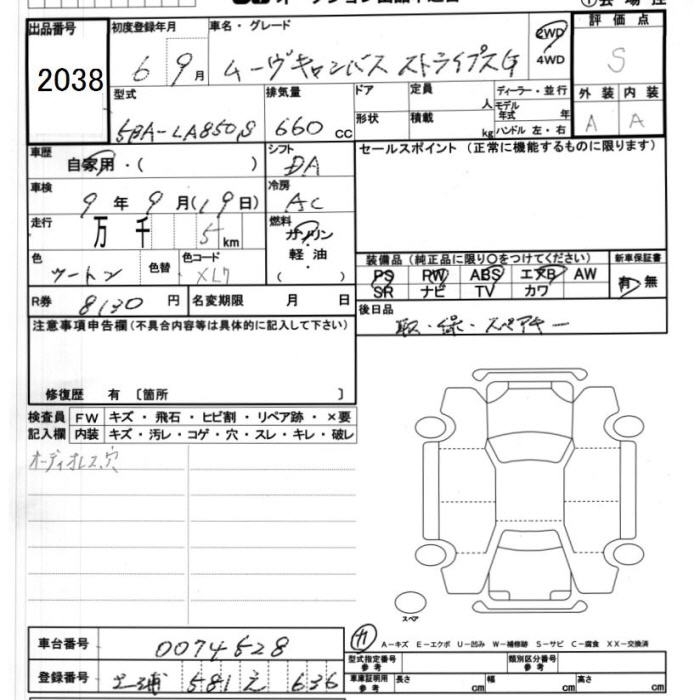 出品番号 初度登録年月 車名・グレード 2WD 評価点
2038 6 9月 ムーヴキャンバス ストライプスG 4WD S
型式 排気量 ドア 定員 人 ディーラー・並行 外装 内装
5BA-LA850S 660 cc 形状 積載 kg モデル年式 年 ハンドル 左・右 A A
車歴 シフト セールスポイント(正常に機能するものに限ります)
自家用・( ) DA
車検 冷房
9年 9月(19日) AC
走行 燃料
万 千 5 km ガソリン
色 色替 色コード 軽油 装備品(純正品に限り○をつけてください) 新車保証書
ツートン XL7 ・ ( ) PS RW ABS エアB AW 有 無
SR ナビ TV カワ
R券 8130円 名変期限 月 日 後日品
注意事項申告欄(不具合内容等は具体的に記入して下さい) 取・保・スペアキー
修復歴 有 〔箇所 〕
検査員 FW キズ・飛石・ヒビ割・リペア跡・×要
記入欄 内装 キズ・汚レ・コゲ・穴・スレ・キレ・破レ
オーディオレス穴
スペア
車台番号 0074528 A-キズ E-エクボ U-凹み W-補修跡 S-サビ C-腐食 XX-交換済
型式指定番号 参考 類別区分番号 参考
登録番号 土浦 581 え 636 車庫証明用 参考 長さ cm 幅 cm 高さ cm